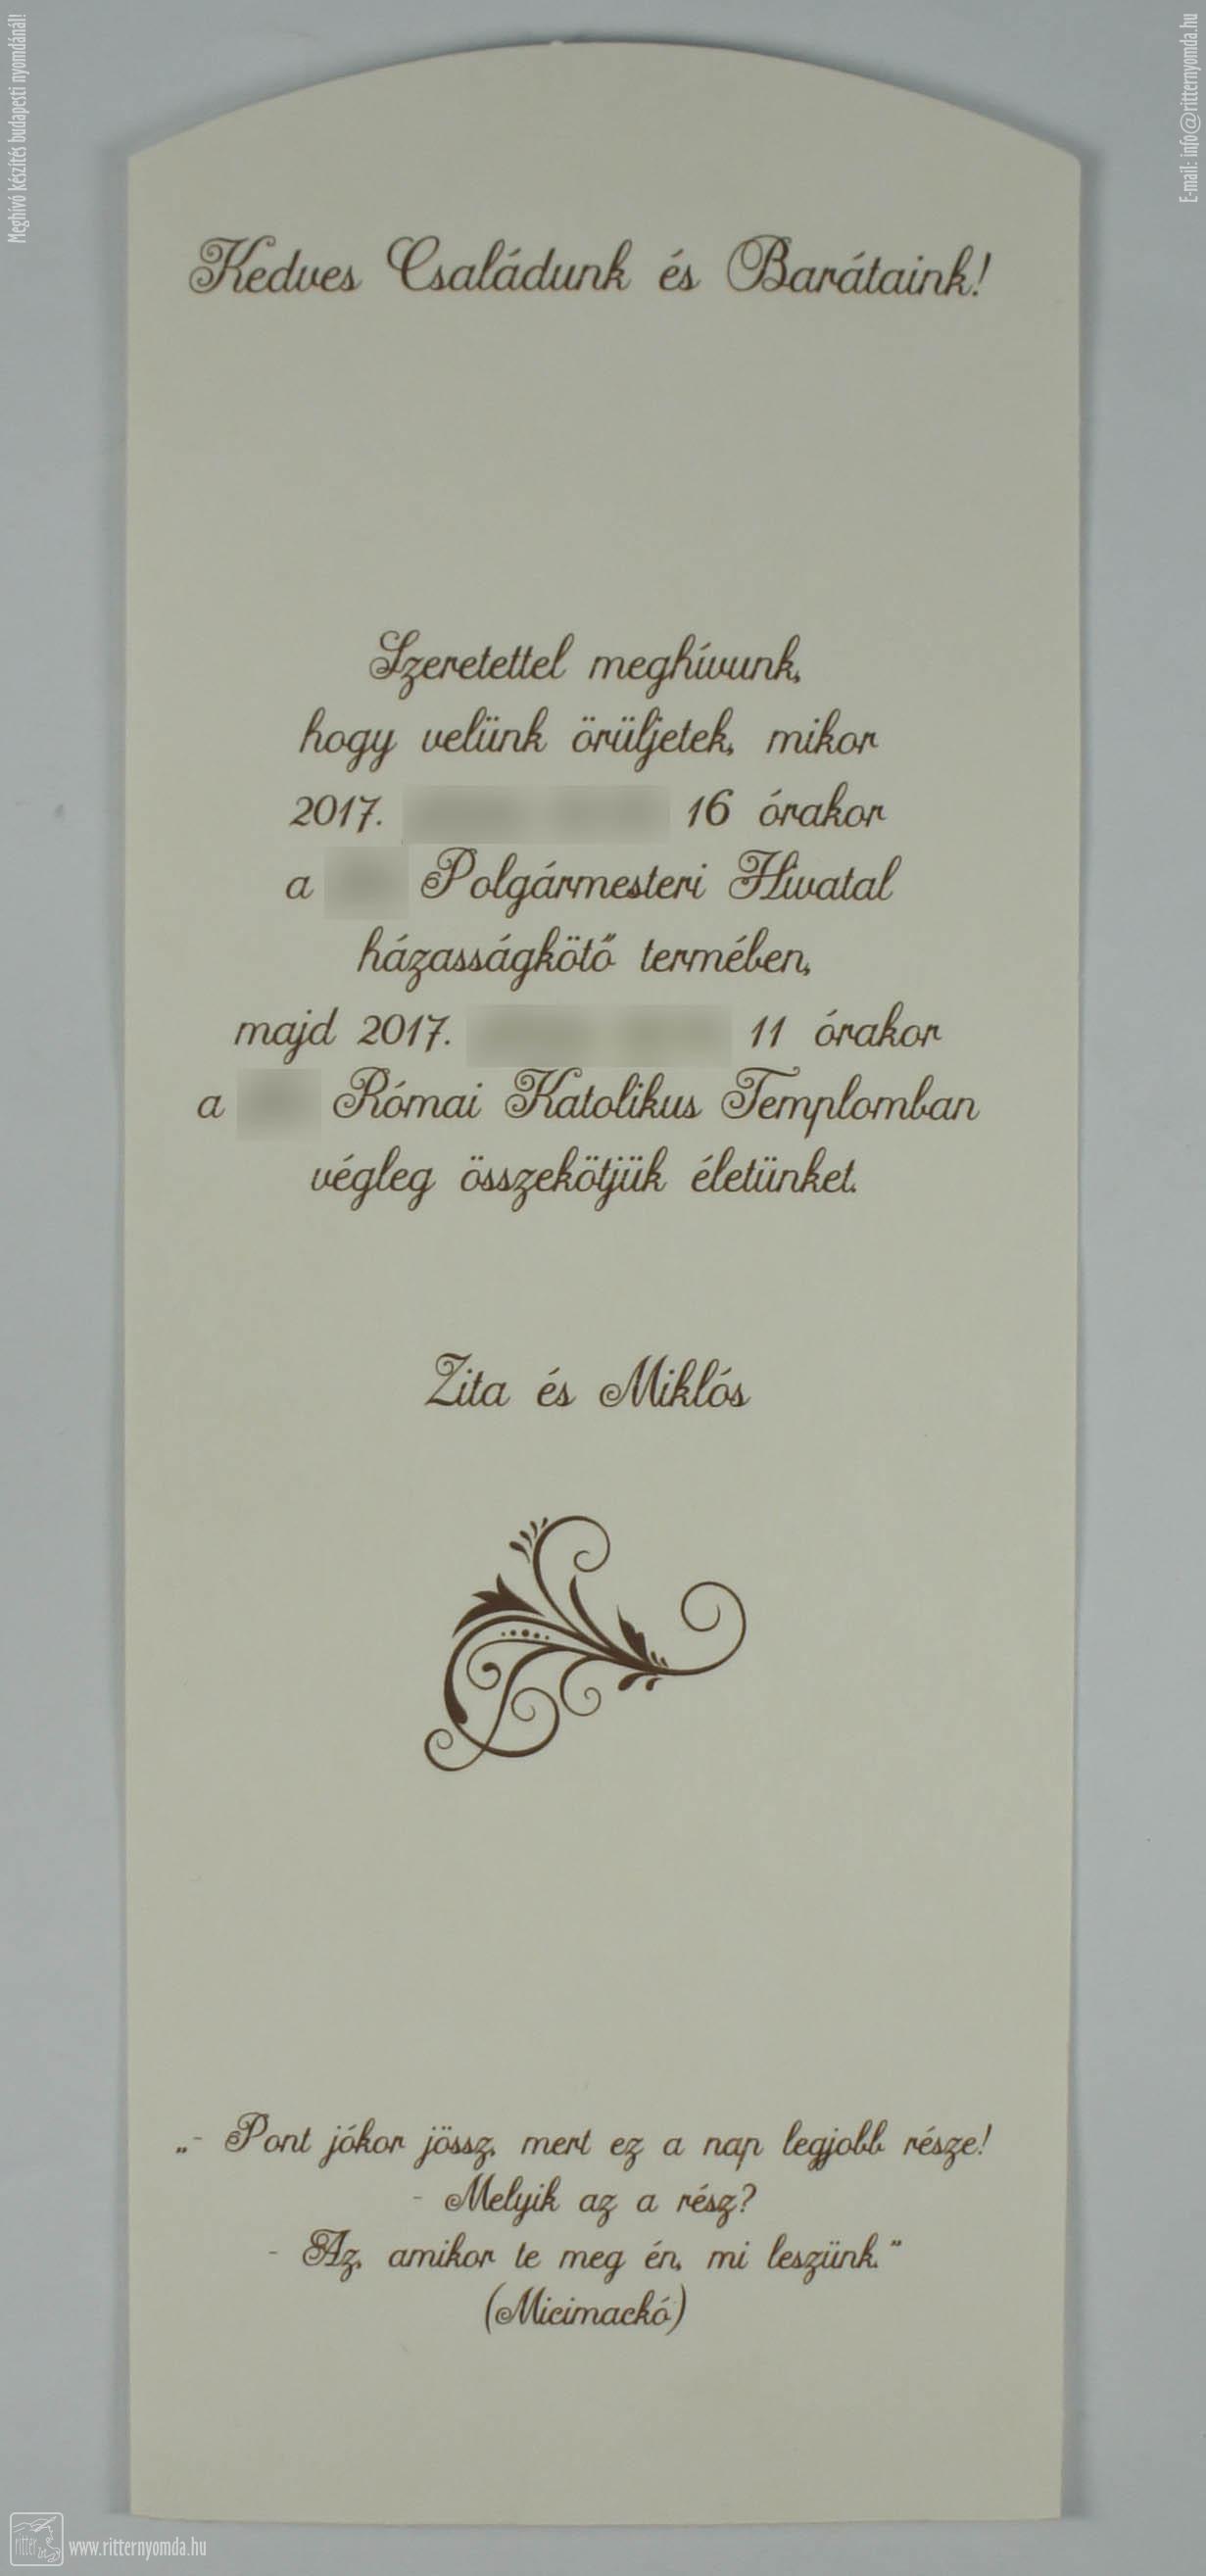 Meghívó készítés budapesti nyomdánál!
E-mail: info@ritternyomda.hu
Kedves Családunk és Barátaink!
Szeretettel meghívunk,
hogy velünk örüljetek, mikor
2017. 16 órakor
a Polgármesteri Hivatal
házasságkötő termében,
majd 2017. 11 órakor
a Római Katolikus Templomban
végleg összekötjük életünket.
Zita és Miklós
„- Pont jókor jössz, mert ez a nap legjobb része!
- Melyik az a rész?
- Az, amikor te meg én, mi leszünk.”
(Micimackó)
ritter
www.ritternyomda.hu